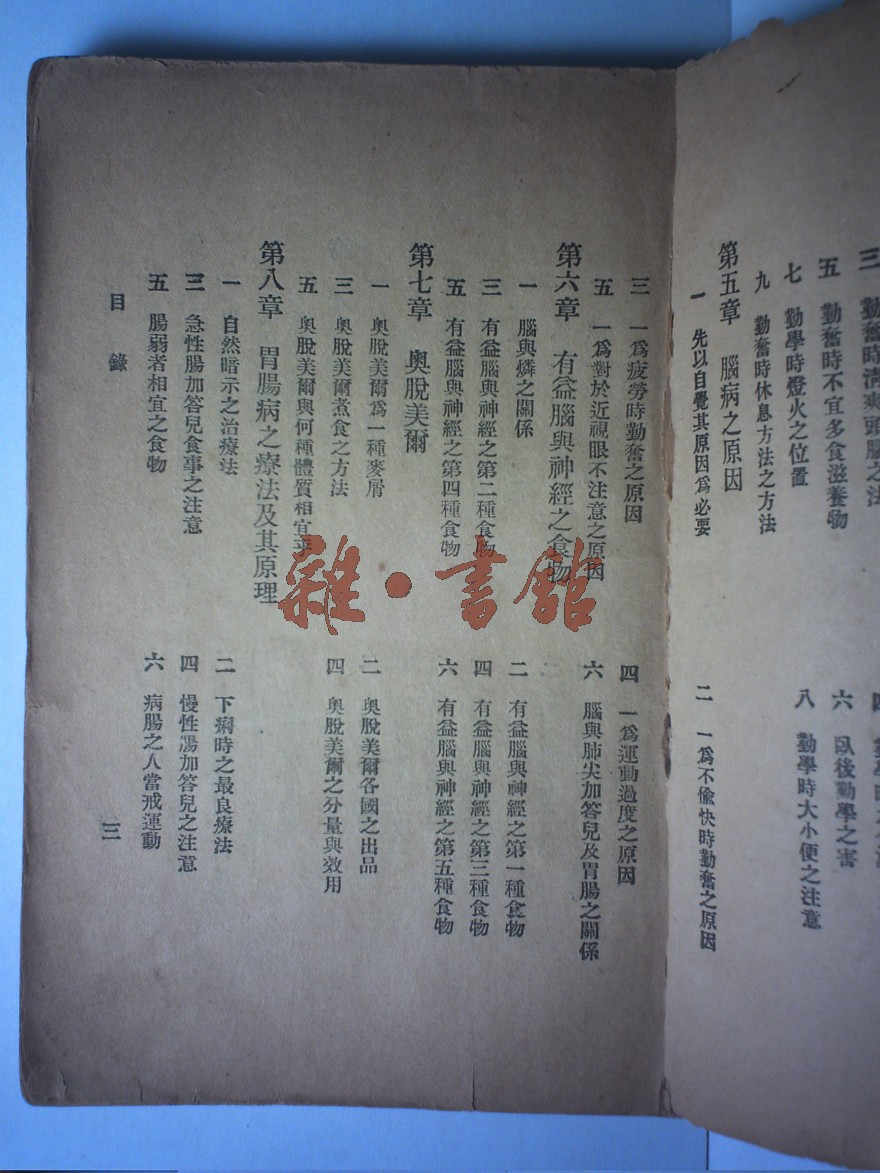 三 勤奮時淸爽頭腦之法
五 勤奮時不宜多食滋養物
六 臥後勤學之害
七 勤學時燈火之位置
八 勤學時大小便之注意
九 勤奮時休息方法之方法
第五章 腦病之原因
一 先以自覺其原因爲必要
二 一爲不愉快時勤奮之原因
三 一爲疲勞時勤奮之原因
四 一爲運動過度之原因
五 一爲對於近視眼不注意之原因
六 腦與肺尖加答兒及胃腸之關係
第六章 有益腦與神經之食物
一 腦與燐之關係
二 有益腦與神經之第一種食物
三 有益腦與神經之第二種食物
四 有益腦與神經之第三種食物
五 有益腦與神經之第四種食物
六 有益腦與神經之第五種食物
第七章 奧脫美爾
一 奧脫美爾爲一種麥屑
二 奧脫美爾各國之出品
三 奧脫美爾煮食之方法
四 奧脫美爾之分量與效用
五 奧脫美爾與何種體質相宜乎
第八章 胃腸病之療法及其原理
一 自然暗示之治療法
二 下痢時之最良療法
三 急性腸加答兒食事之注意
四 慢性腸加答兒之注意
五 腸弱者相宜之食物
六 病腸之人當戒運動
目錄
三
雜·書館